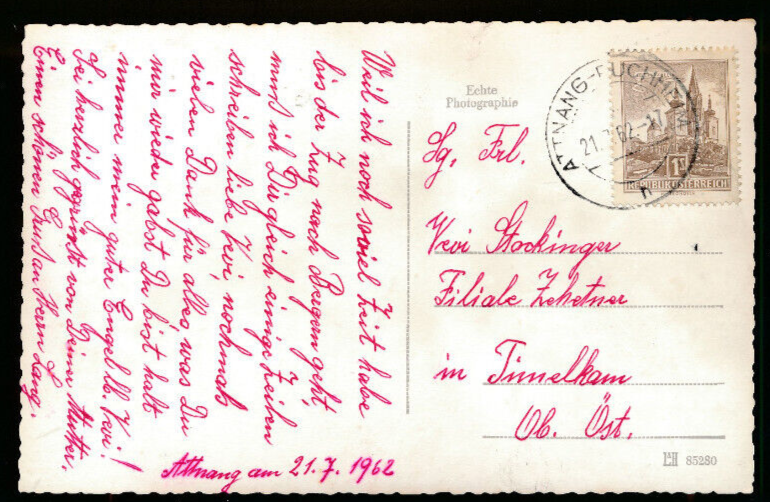 Weil ich noch soviel Zeit habe
bis der Zug nach Bergern geht,
muß ich Dir gleich einige Zeilen
schreiben liebe Vevi, nochmals
vielen Dank für alles was Du
mir wieder gabst Du bist halt
immer mein guter Engel lb. Vevi!
Sei herzlich gegrüßt von Deiner Mutter.
Einen schönen Gruß an Herrn Lang.
Attnang am 21.7.1962
Echte
Photographie
Sg. Frl.
Vevi Stockinger
Filiale Zehetner
in Timelkam
Ob. Öst.
85280
ATTNANG-PUCHHEIM
21. 62
n
1S
REPUBLIK ÖSTERREICH